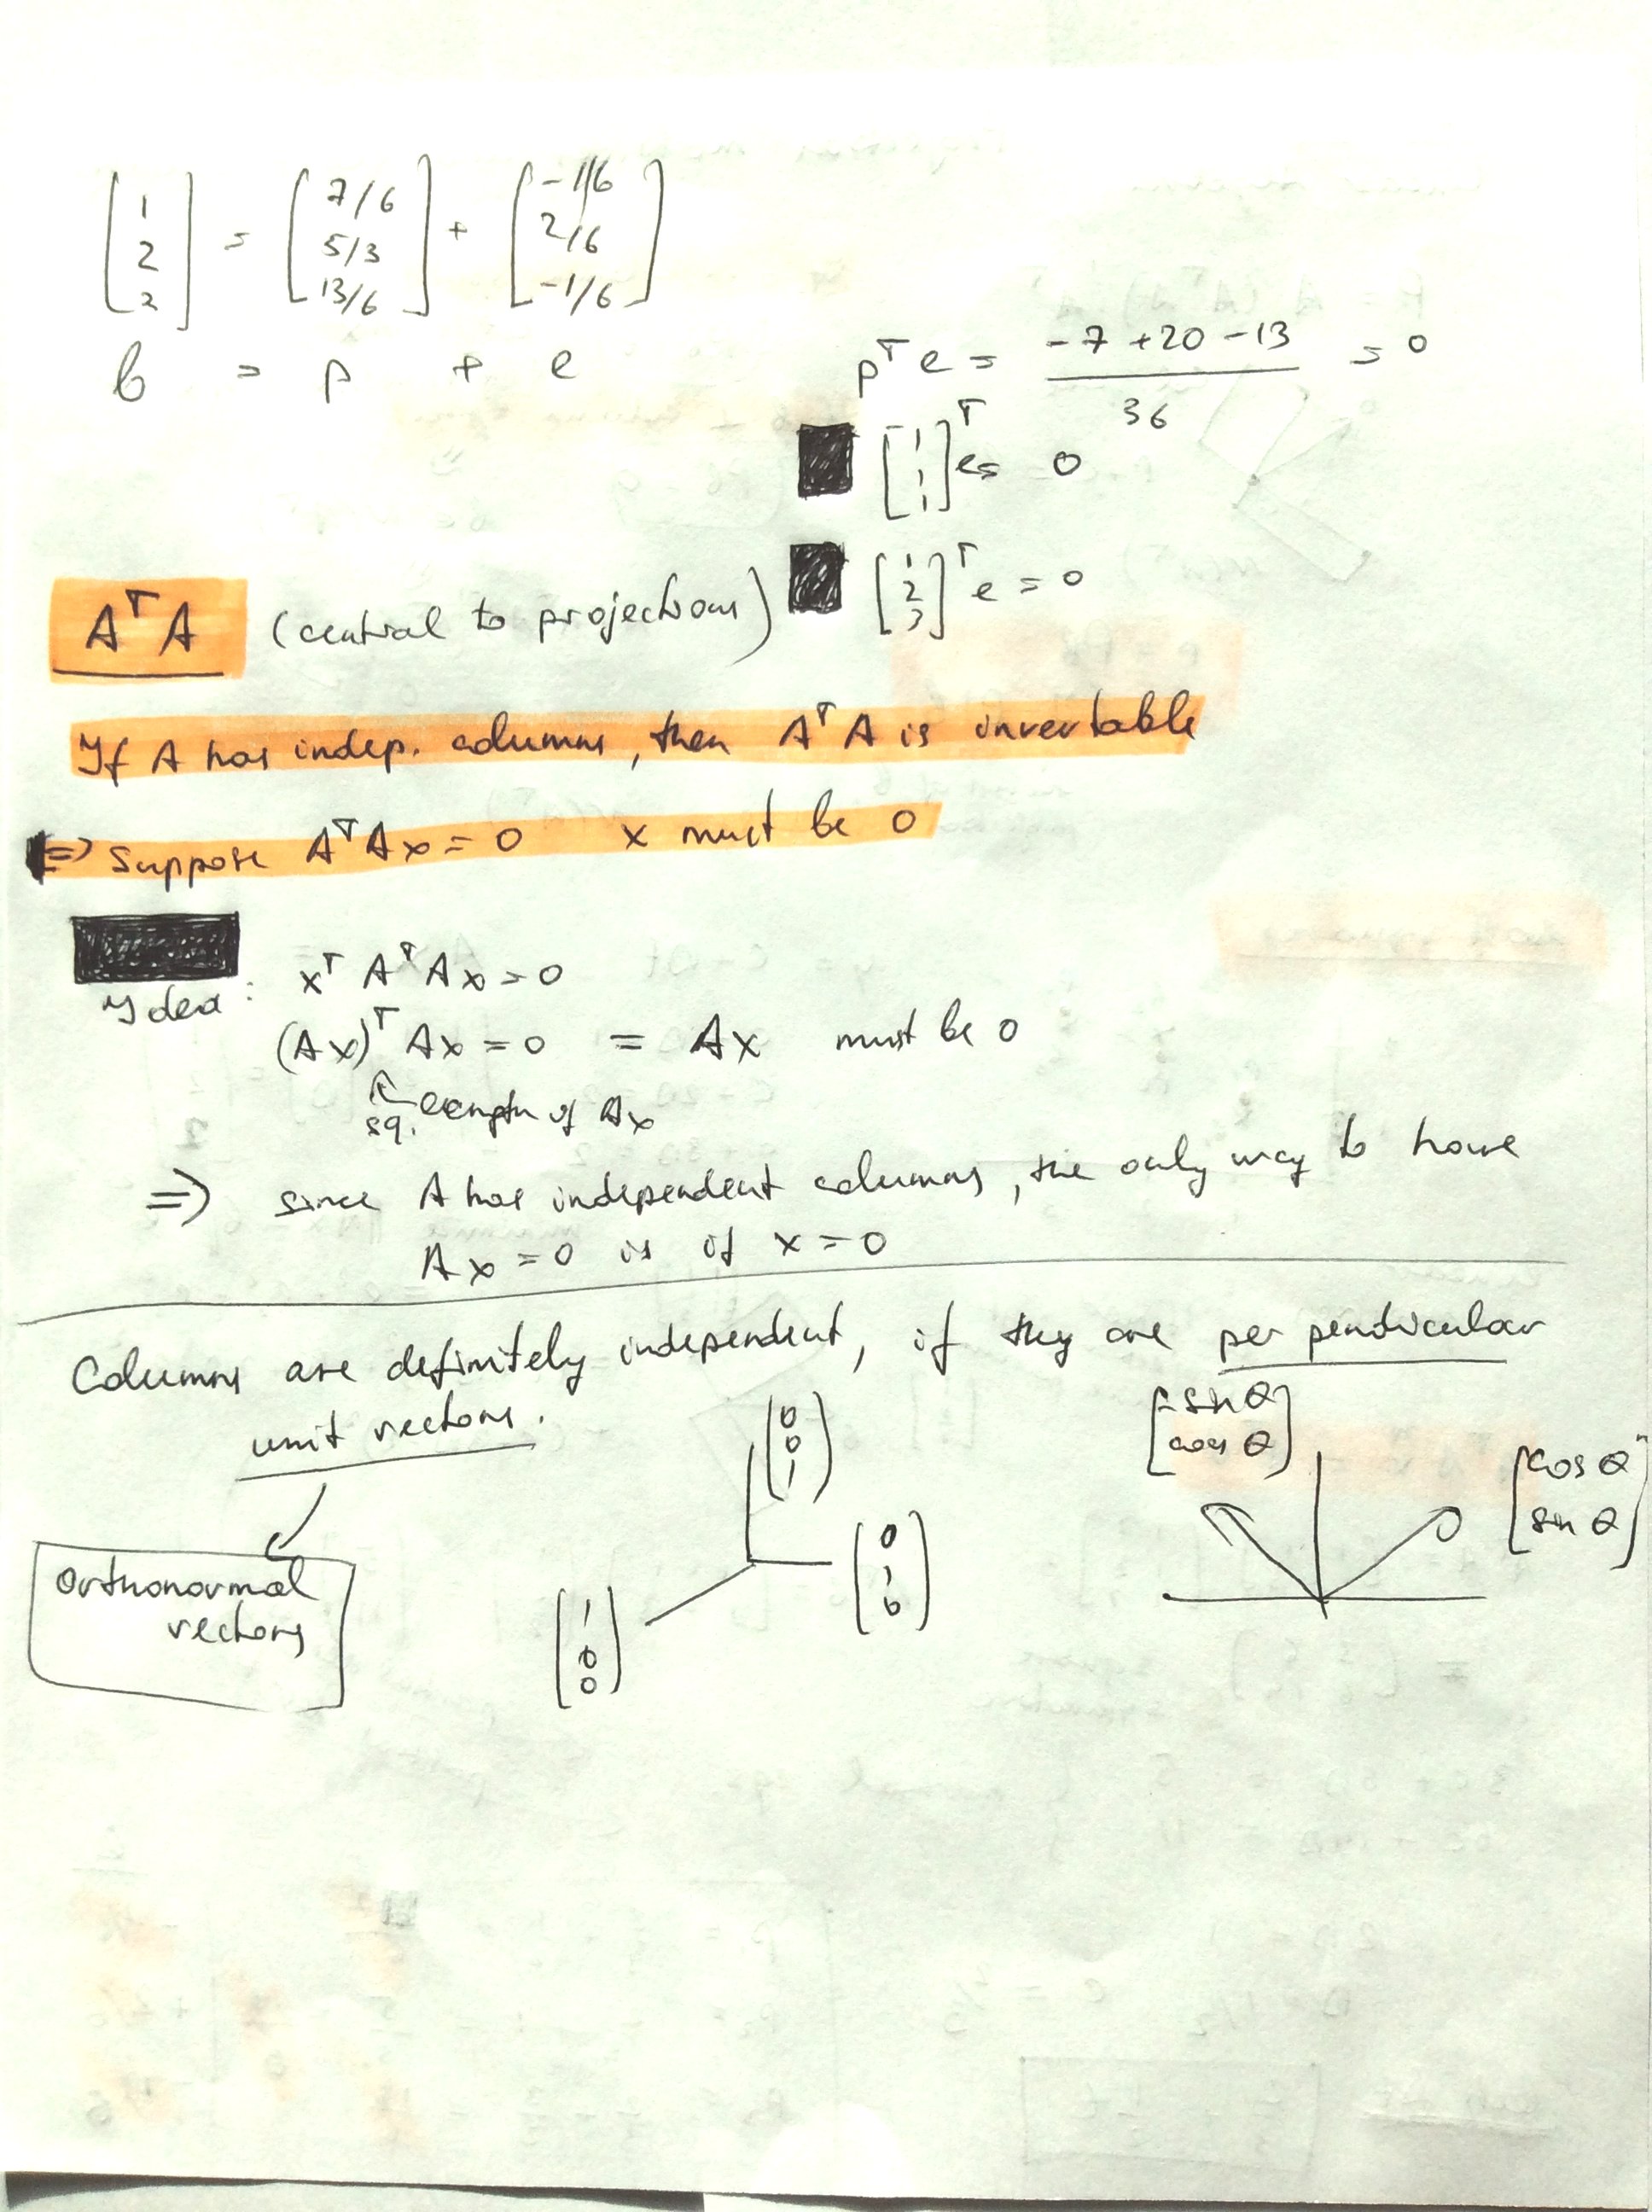 [1 2 2] = [7/6 5/3 13/6] + [-1/6 2/6 -1/6]
b = p + e
pᵀe = (-7 + 20 - 13)/36 = 0
[1 1 1]ᵀ e = 0
[1 2 3]ᵀ e = 0
AᵀA (central to projections)
If A has indep. columns, then AᵀA is invertable
=> Suppose AᵀAx = 0 x must be 0
Idea: xᵀAᵀAx = 0
(Ax)ᵀAx = 0 = Ax must be 0
sq. length of Ax
=> since A has independent columns, the only way to have
Ax = 0 is if x = 0
Columns are definitely independent, if they are perpendicular
unit vectors.
Orthonormal
vectors
[0 0 1]
[0 1 0]
[1 0 0]
[-sin θ cos θ]
[cos θ sin θ]